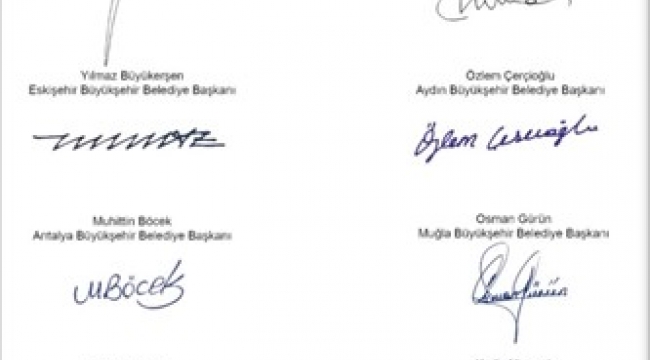 Yılmaz Büyükerşen
Eskişehir Büyükşehir Belediye Başkanı
Özlem Çerçioğlu
Aydın Büyükşehir Belediye Başkanı
Özlem Çerçioğlu
Muhittin Böcek
Antalya Büyükşehir Belediye Başkanı
Osman Gürün
Muğla Büyükşehir Belediye Başkanı
MBöcek
Osman Gürün